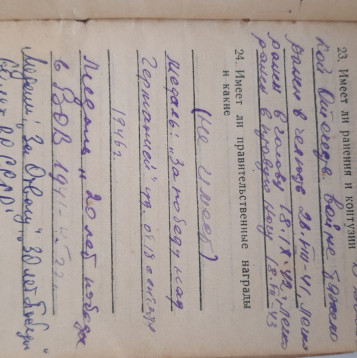 23. Имеет ли ранения и контузии
кой Отечеств. войне тяжело
ранен в челюсть 28.VIII-41, легко
ранен в голову 18.IX.42, легко
ранен в правую ногу 18.VII-43
24. Имеет ли правительственные награды
и какие
(не имеет)
медаль: „За победу над
Германией"
1946 г.
Медаль „20 лет победы
в ВОВ 1941-45
Медали „За Отвагу", „30 лет Победы
лет ВС СССР"